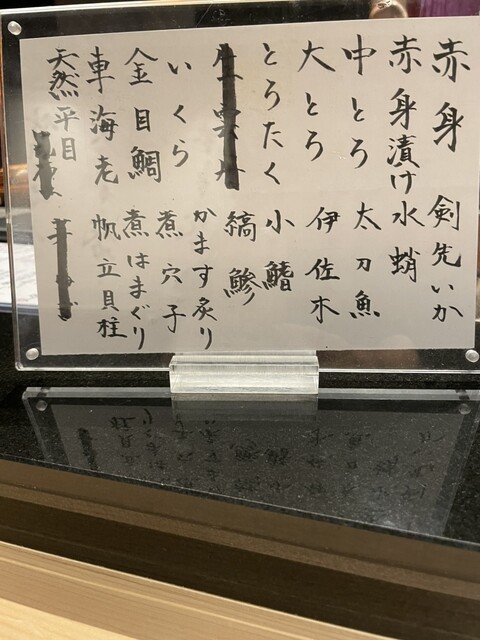 赤身
赤身漬け
中とろ
大とろ
とろたく
生雲丹
いくら
金目鯛
車海老
天然平目
剣先いか
水蛸
太刀魚
伊佐木
小鰭
縞鯵
かます炙り
煮穴子
煮はまぐり
帆立貝柱